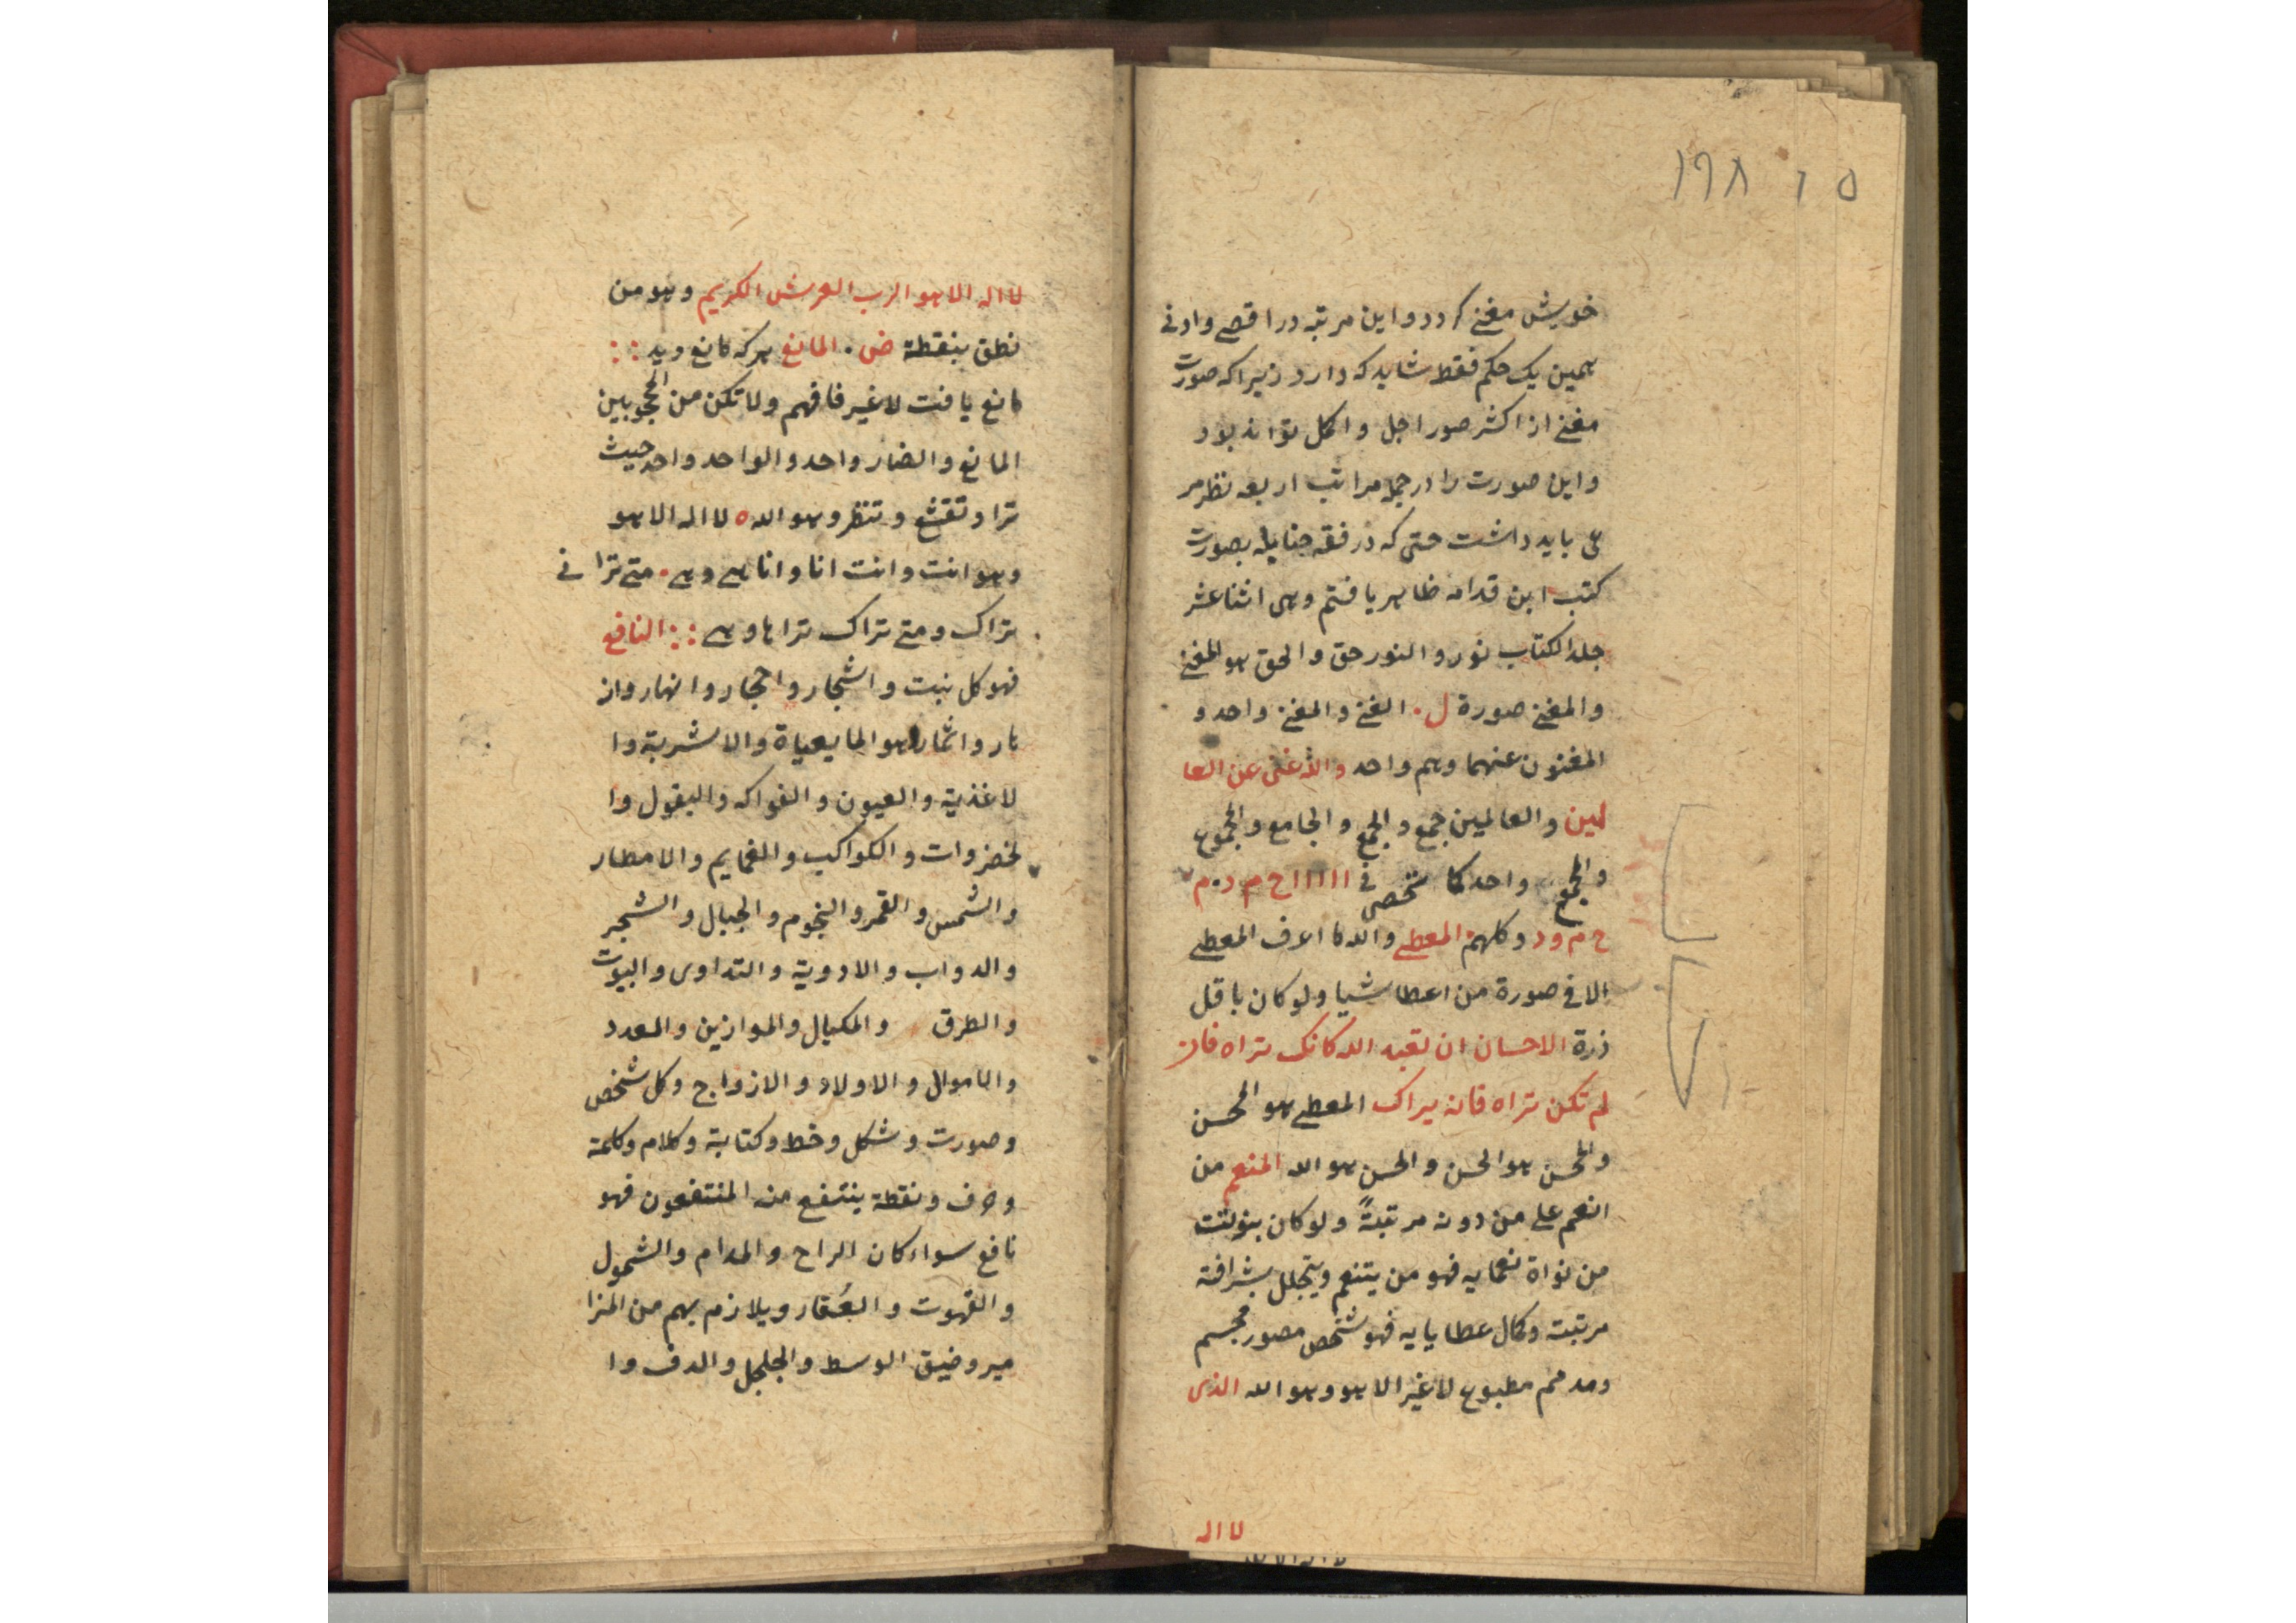 ١٩٨ ١٥
خویش مغنے کردد و این مرتبه در اقصے وادنی
همین یک حکم فقط شاید که دارد زیراکه صورت
مغنے از اکثر صور اجل و اکمل تواند بود
واین صورت را در جمله مراتب اربعه نظر مر
عی باید داشت حتی که در فقه حنابله بصورت
کتب ابن قدامه ظاهر یافتم وهی اثنا عشر
جلد الکتاب نور والنور حق والحق هو المغنے
والمغنے صورة ل. الغنے والمغنے واحد و
المغنون عنهما وهم واحد والله غنی عن العا
لمین والعالمین جمع والجمع والجامع والمجموع
والمجموع واحد کما شخص فی ااااااح م د. م
ح م و د وکلهم المعطے والله ما اعرف المعطے
الا فی صورة من اعطا شیا ولو کان باقل
ذرة الاحسان ان تعبد الله کانک تراه فان
لم تکن تراه فانه یراک المعطے هو المحسن
والمحسن هو الحسن والحسن هو الله المنعم من
انعم علی من دونه مرتبةً ولو کان بنولتت
من نواة نعمایه فهو من یتنعم ویتجلل بشرافة
مرتبت وکمال عطایایه فهو شخص مصور مجسم
ومدمم مطبوع لا غیر الا هو وهو الله الذی
لا اله
لا اله الا هو الرب العرش الکریم وهو من
نطق بنقطة ض. المانع هرکه مانع دید
مانع یافت لا غیر فافهم ولا تکن من المحجوبین
المانع والضار واحد والواحد واحد حیث
ترا وتقشع وتنظر وهو الله ه لا اله الا هو
وهو انت وانت انا وانا هے وهے. متے ترانی
تراک ومتے تراک تراها وهے النافع
فهو کل نبت واشجار واحجار وانهار واز
هار واثمار وهو المایعیاة والاشربة وا
لاغذیة والعیون والفواکه والبقول وا
لخضروات والکواکب والغمایم والامطار
والشمس والقمر والنجوم والجبال والشجر
والدواب والادویة والتداوی والبیوت
والطرق والمکیال والموازین والعدد
والاموال والاولاد والازواج وکل شخص
وصورت وشکل وخط وکتابة وکلام وکلمة
وحرف ونقطة ینتفع منه المنتفعون فهو
نافع سواء کان الراح والمدام والشمول
والقهوت والعُقار ویلازم بهم من المزا
میر وضیق الوسط والجلجل والدف وا